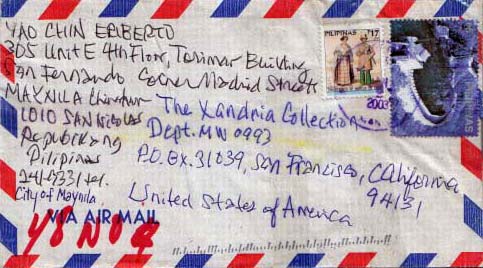 YAO CHIN ERIBERTO
305 Unit E 4th Floor, Tarimar Building
San Fernando Corner Madrid Streets
MAYNILA Chinatown
1010 SAN Nicolas
Republikang
Pilipinas
241-9331 tel.
City of Maynila
The Xandria Collection
Dept. MW 0993
P.O. Bx. 31039, San Francisco, California
94131
United States of America
VIA AIR MAIL
PILIPINAS 17
2003